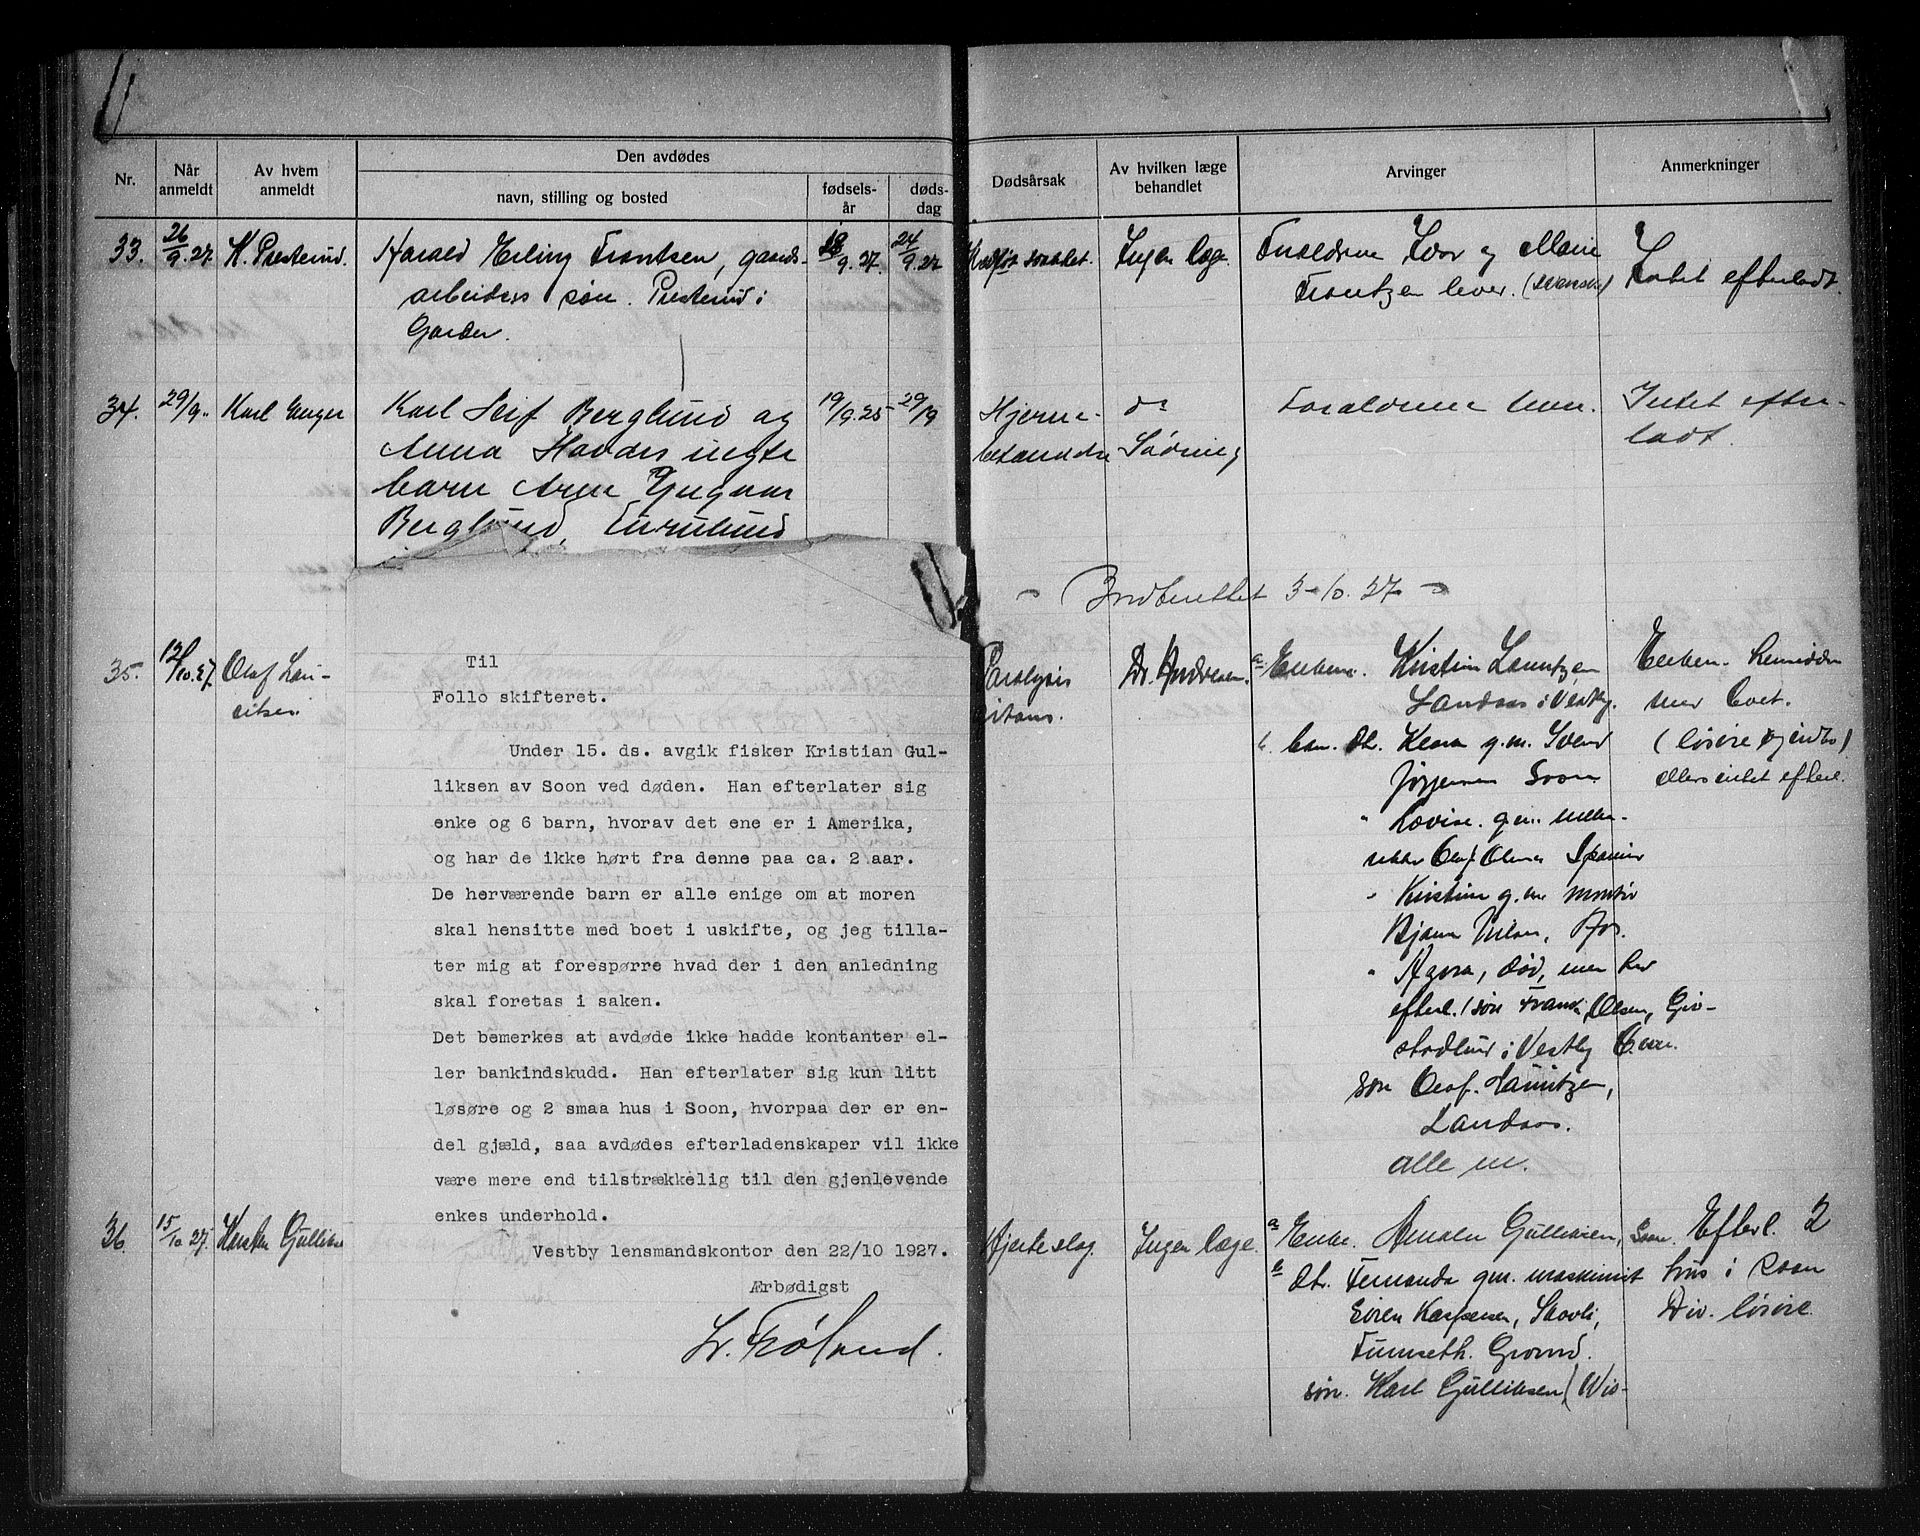 Nr.
Når anmeldt
Av hvem anmeldt
Den avdødes
navn, stilling og bosted
fødsels-år
døds-dag
Dødsårsak
Av hvilken læge behandlet
Arvinger
Anmerkninger
33. 26/9.27. K. Presterud. Harald Erling Frantsen, gaards-
arbeiders søn. Presterud i
Garder.
18/9.27. 24/9.27
Ingen læge.
Forældrene Ivar og Marie
Frantzen lever.
Intet efterladt.
34. 29/9. Karl Unger Karl Leif Berglund og
Anna Havdes uegte
barn Arne Yngvar
Berglund,
19/9.25 29/9
Hjerne-
betændelse
do
Forældrene
Intet efter-
ladt.
Indberettet 3-10.27
35. 12/10.27. Olaf Lau-
ritsen
Paralysis
agitans.
Dr. Andresen.
a. Enken. Kristin Lauritzen
Landaas i Vestby.
b. barn. Dt. Klara g.m. Svend
Jørgensen Soon
" Lovise. g.m.
Olaf Olsen
" Kristine g.m. montør
Bjarne Nilsen, Aas.
" Agna, død, men har
efterl. 1 søn Frank Olsen,
i Vestby
søn Olaf Lauritzen,
Landaas.
alle m.
Enken
med boet.
(løsøre
ellers intet efterl.
36. 15/10.27. Karsten Gulliksen
Hjerteslag. Ingen læge.
a Enke. Amalie Gulliksen, Soon.
b dt. Fernanda g.m. maskinist
Søren Kaspersen,
søn. Karl Gulliksen,
Efterl. 2
hus i Soon
Div. løsøre.
Til
Follo skifteret.
Under 15. ds. avgik fisker Kristian Gul-
liksen av Soon ved døden. Han efterlater sig
enke og 6 barn, hvorav det ene er i Amerika,
og har de ikke hørt fra denne paa ca. 2 aar.
De herværende barn er alle enige om at moren
skal hensitte med boet i uskifte, og jeg tilla-
ter mig at forespørre hvad der i den anledning
skal foretas i saken.
Det bemerkes at avdøde ikke hadde kontanter el-
ler bankindskudd. Han efterlater sig kun litt
løsøre og 2 smaa hus i Soon, hvorpaa der er en-
del gjæld, saa avdødes efterladenskaper vil ikke
være mere end tilstrækkelig til den gjenlevende
enkes underhold.
Vestby lensmandskontor den 22/10 1927.
Ærbødigst